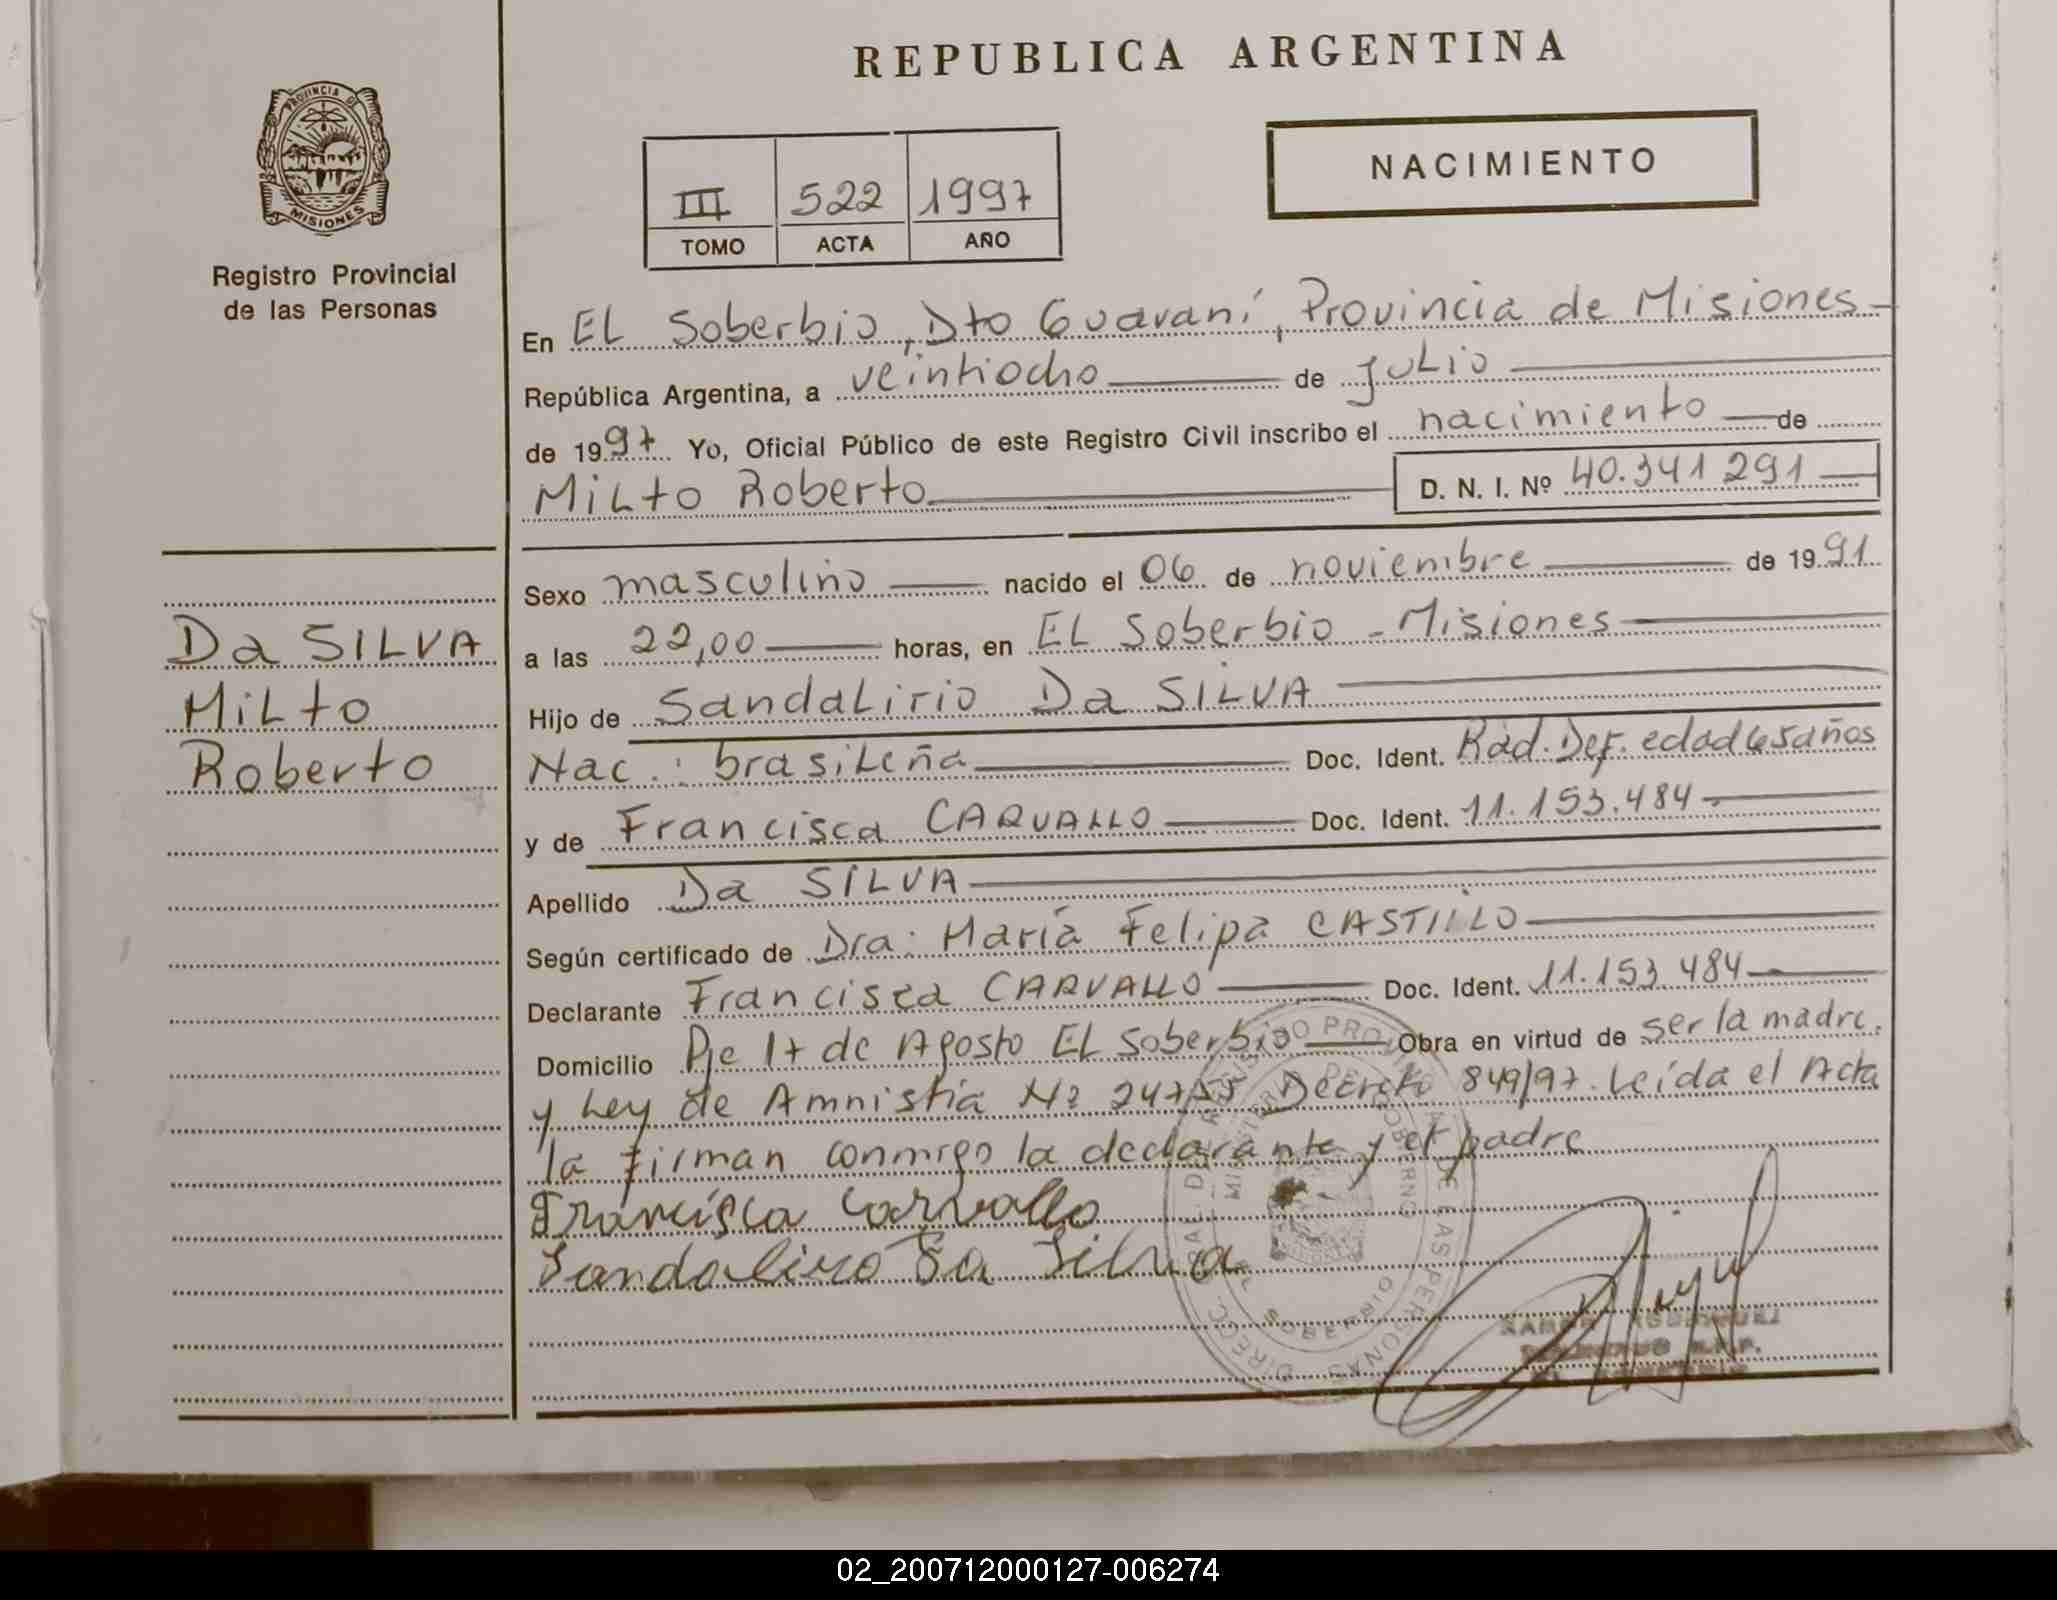 REPUBLICA ARGENTINA
PROVINCIA DE
MISIONES
Registro Provincial
de las Personas
III 522 1997
TOMO ACTA AÑO
NACIMIENTO
En EL Soberbio, Dto Guaraní, Provincia de Misiones
República Argentina, a veintiocho de julio
de 1997 Yo, Oficial Público de este Registro Civil inscribo el nacimiento de
Milto Roberto D. N. I. Nº 40.341 291
Sexo masculino nacido el 06 de noviembre de 1991
a las 22,00 horas, en EL Soberbio - Misiones
Hijo de Sandalirio Da SILVA
Nac.: brasileña Doc. Ident. Rad. Def. edad 65 años
y de Francisca CARVALLO Doc. Ident. 11.153.484
Apellido Da SILVA
Según certificado de Dra: María Felipa CASTILLO
Declarante Francisca CARVALLO Doc. Ident. 11.153.484
Domicilio Pje 17 de Agosto EL Soberbio Obra en virtud de ser la madre.
y Ley de Amnistia Nº 24755 Decreto 849/97. Leída el Acta
la firman conmigo la declarante y el padre
Francisca Carvallo
Sandalirio Da Silva
Da SILVA
Milto
Roberto
DIRECC. GRAL. DEL REGISTRO PROVINCIAL DE LAS PERSONAS
MINISTERIO DE GOBIERNO
EL SOBERBIO
02_200712000127-006274